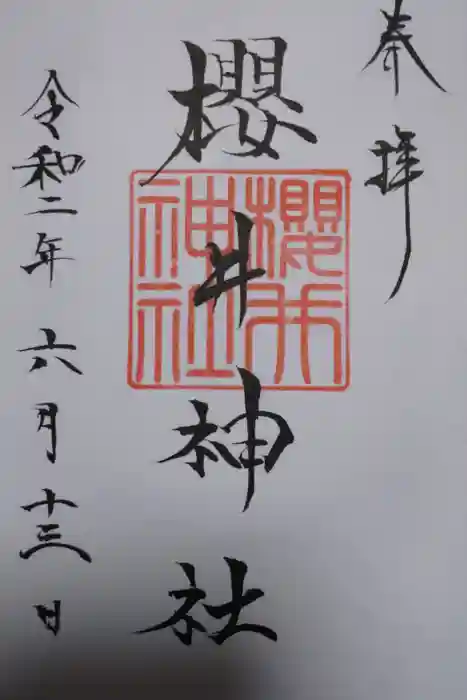 奉拝
櫻井神社
櫻井神社
令和二年六月十三日